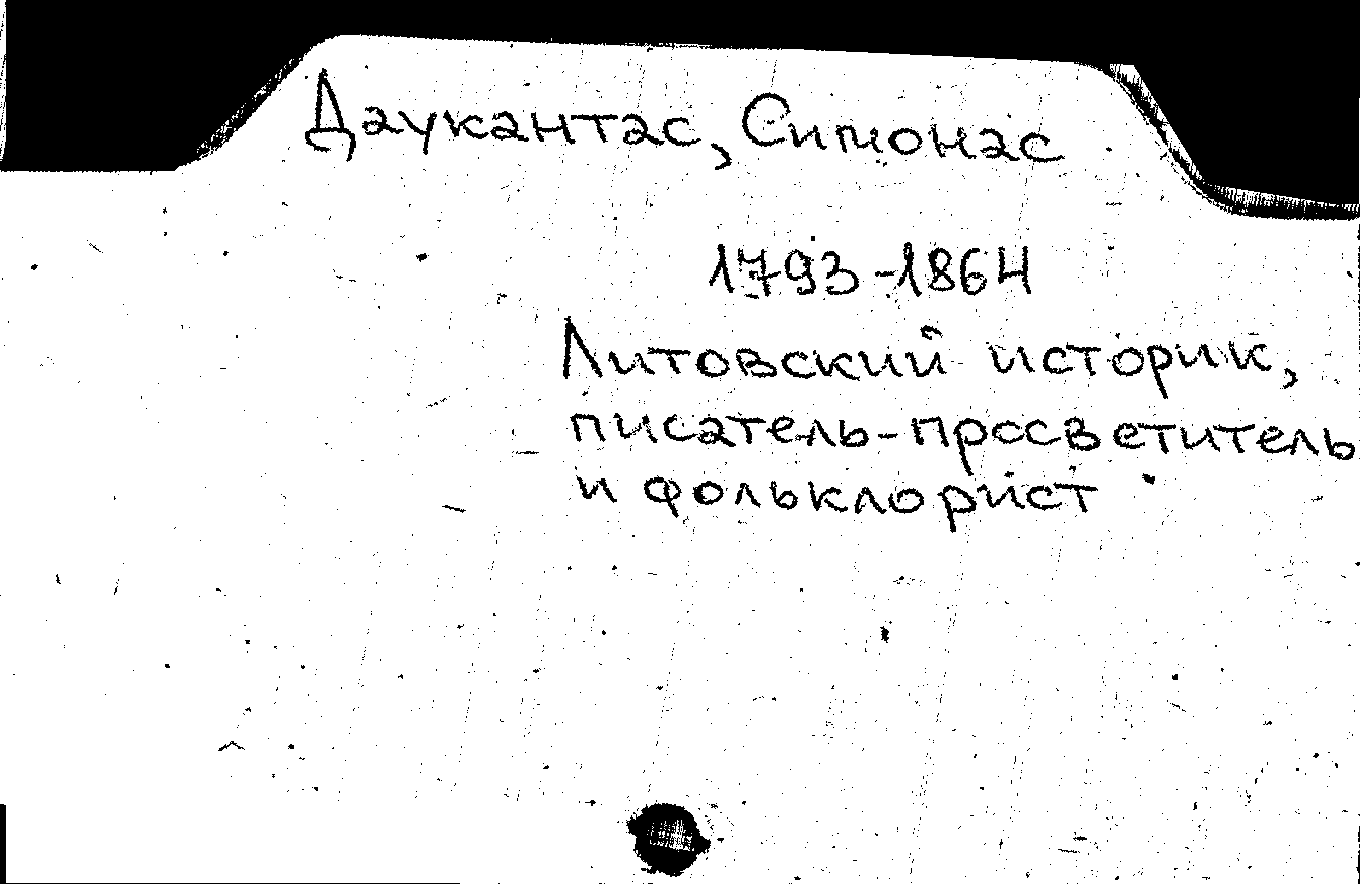 Даукантас, Симонас
1793-1864
Литовский историк,
писатель-просветитель
и фольклорист